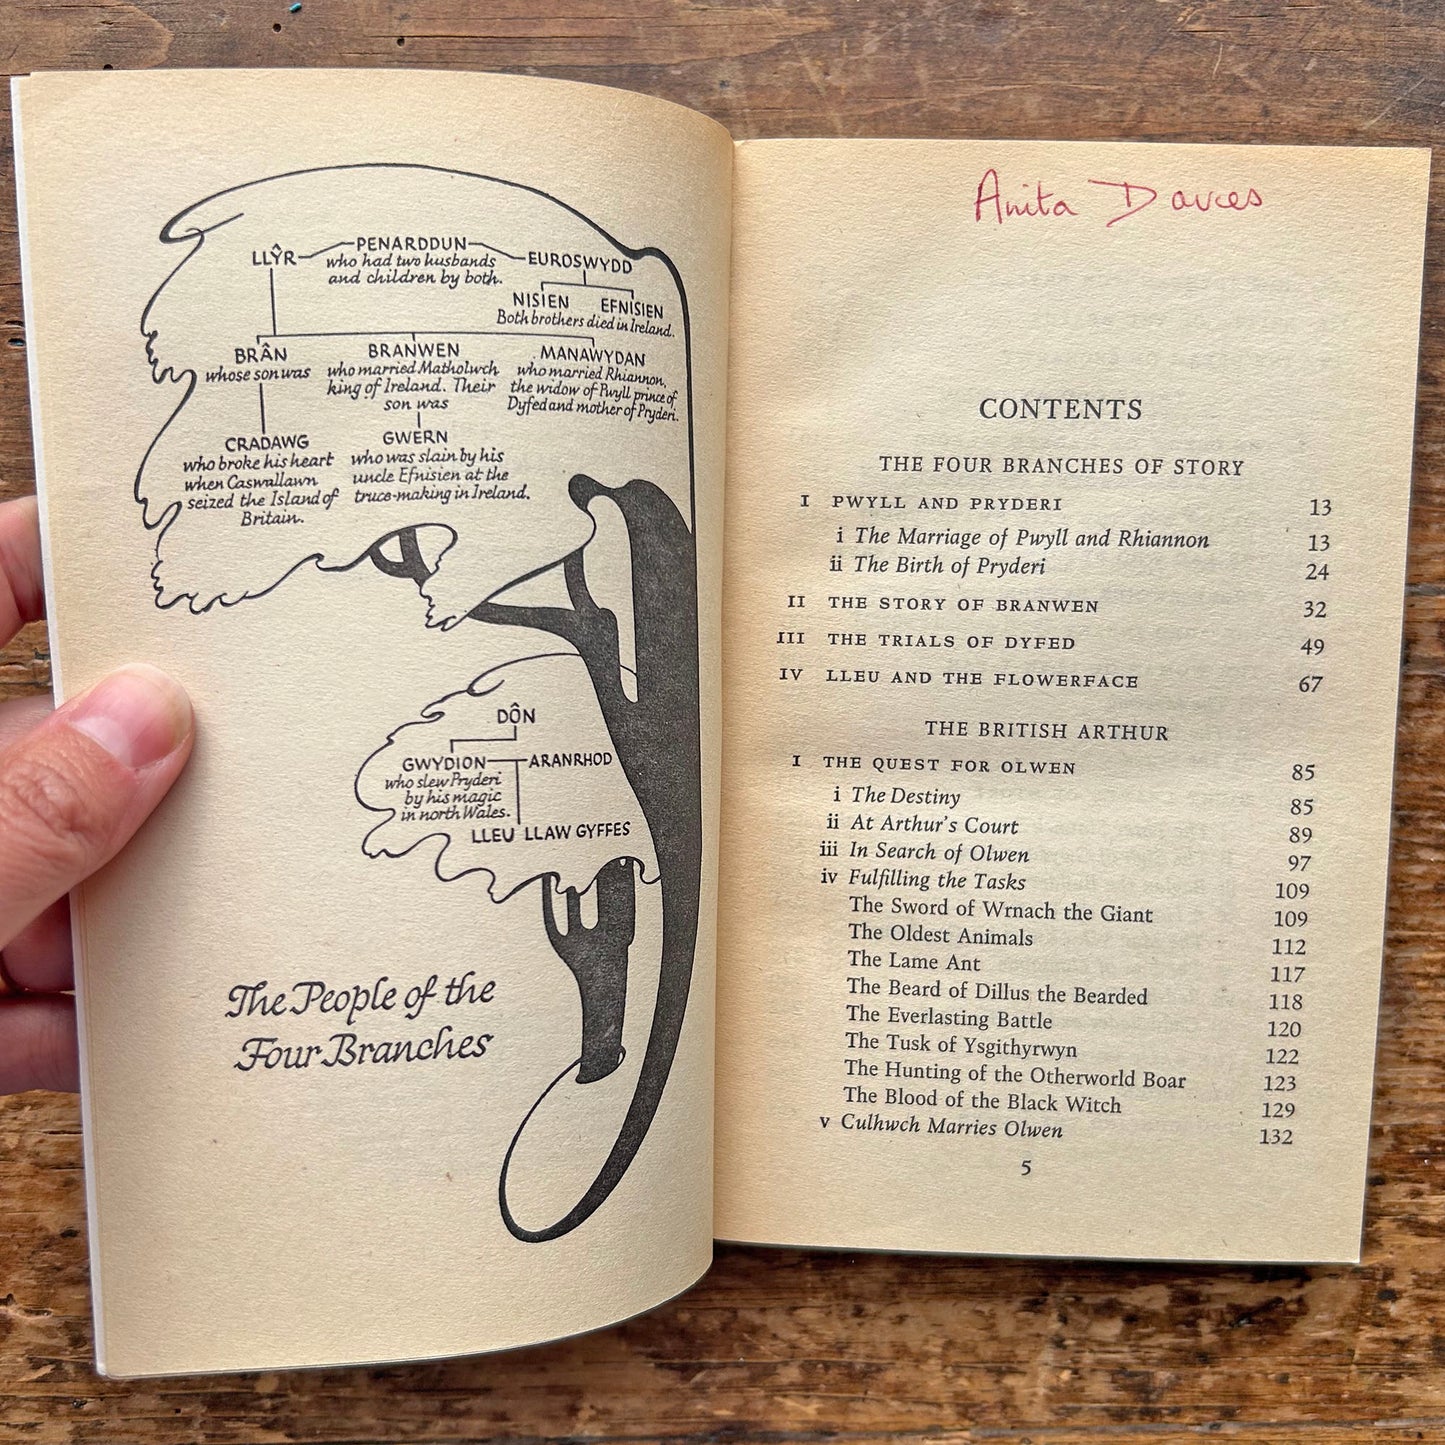 LLŶR
PENARDDUN
who had two husbands
and children by both.
EUROSWYDD
NISIEN
EFNISIEN
Both brothers died in Ireland.
BRÂN
whose son was
BRANWEN
who married Matholwch
king of Ireland. Their
son was
MANAWYDAN
who married Rhiannon,
the widow of Pwyll prince of
Dyfed and mother of Pryderi.
CRADAWG
who broke his heart
when Caswallawn
seized the Island of
Britain.
GWERN
who was slain by his
uncle Efnisien at the
truce-making in Ireland.
DÔN
GWYDION
who slew Pryderi
by his magic
in north Wales.
ARANRHOD
LLEU LLAW GYFFES
The People of the
Four Branches
Anita Davies
CONTENTS
THE FOUR BRANCHES OF STORY
I PWYLL AND PRYDERI 13
i The Marriage of Pwyll and Rhiannon 13
ii The Birth of Pryderi 24
II THE STORY OF BRANWEN 32
III THE TRIALS OF DYFED 49
IV LLEU AND THE FLOWERFACE 67
THE BRITISH ARTHUR
I THE QUEST FOR OLWEN 85
i The Destiny 85
ii At Arthur's Court 89
iii In Search of Olwen 97
iv Fulfilling the Tasks 109
The Sword of Wrnach the Giant 109
The Oldest Animals 112
The Lame Ant 117
The Beard of Dillus the Bearded 118
The Everlasting Battle 120
The Tusk of Ysgithyrwyn 122
The Hunting of the Otherworld Boar 123
The Blood of the Black Witch 129
v Culhwch Marries Olwen 132
5